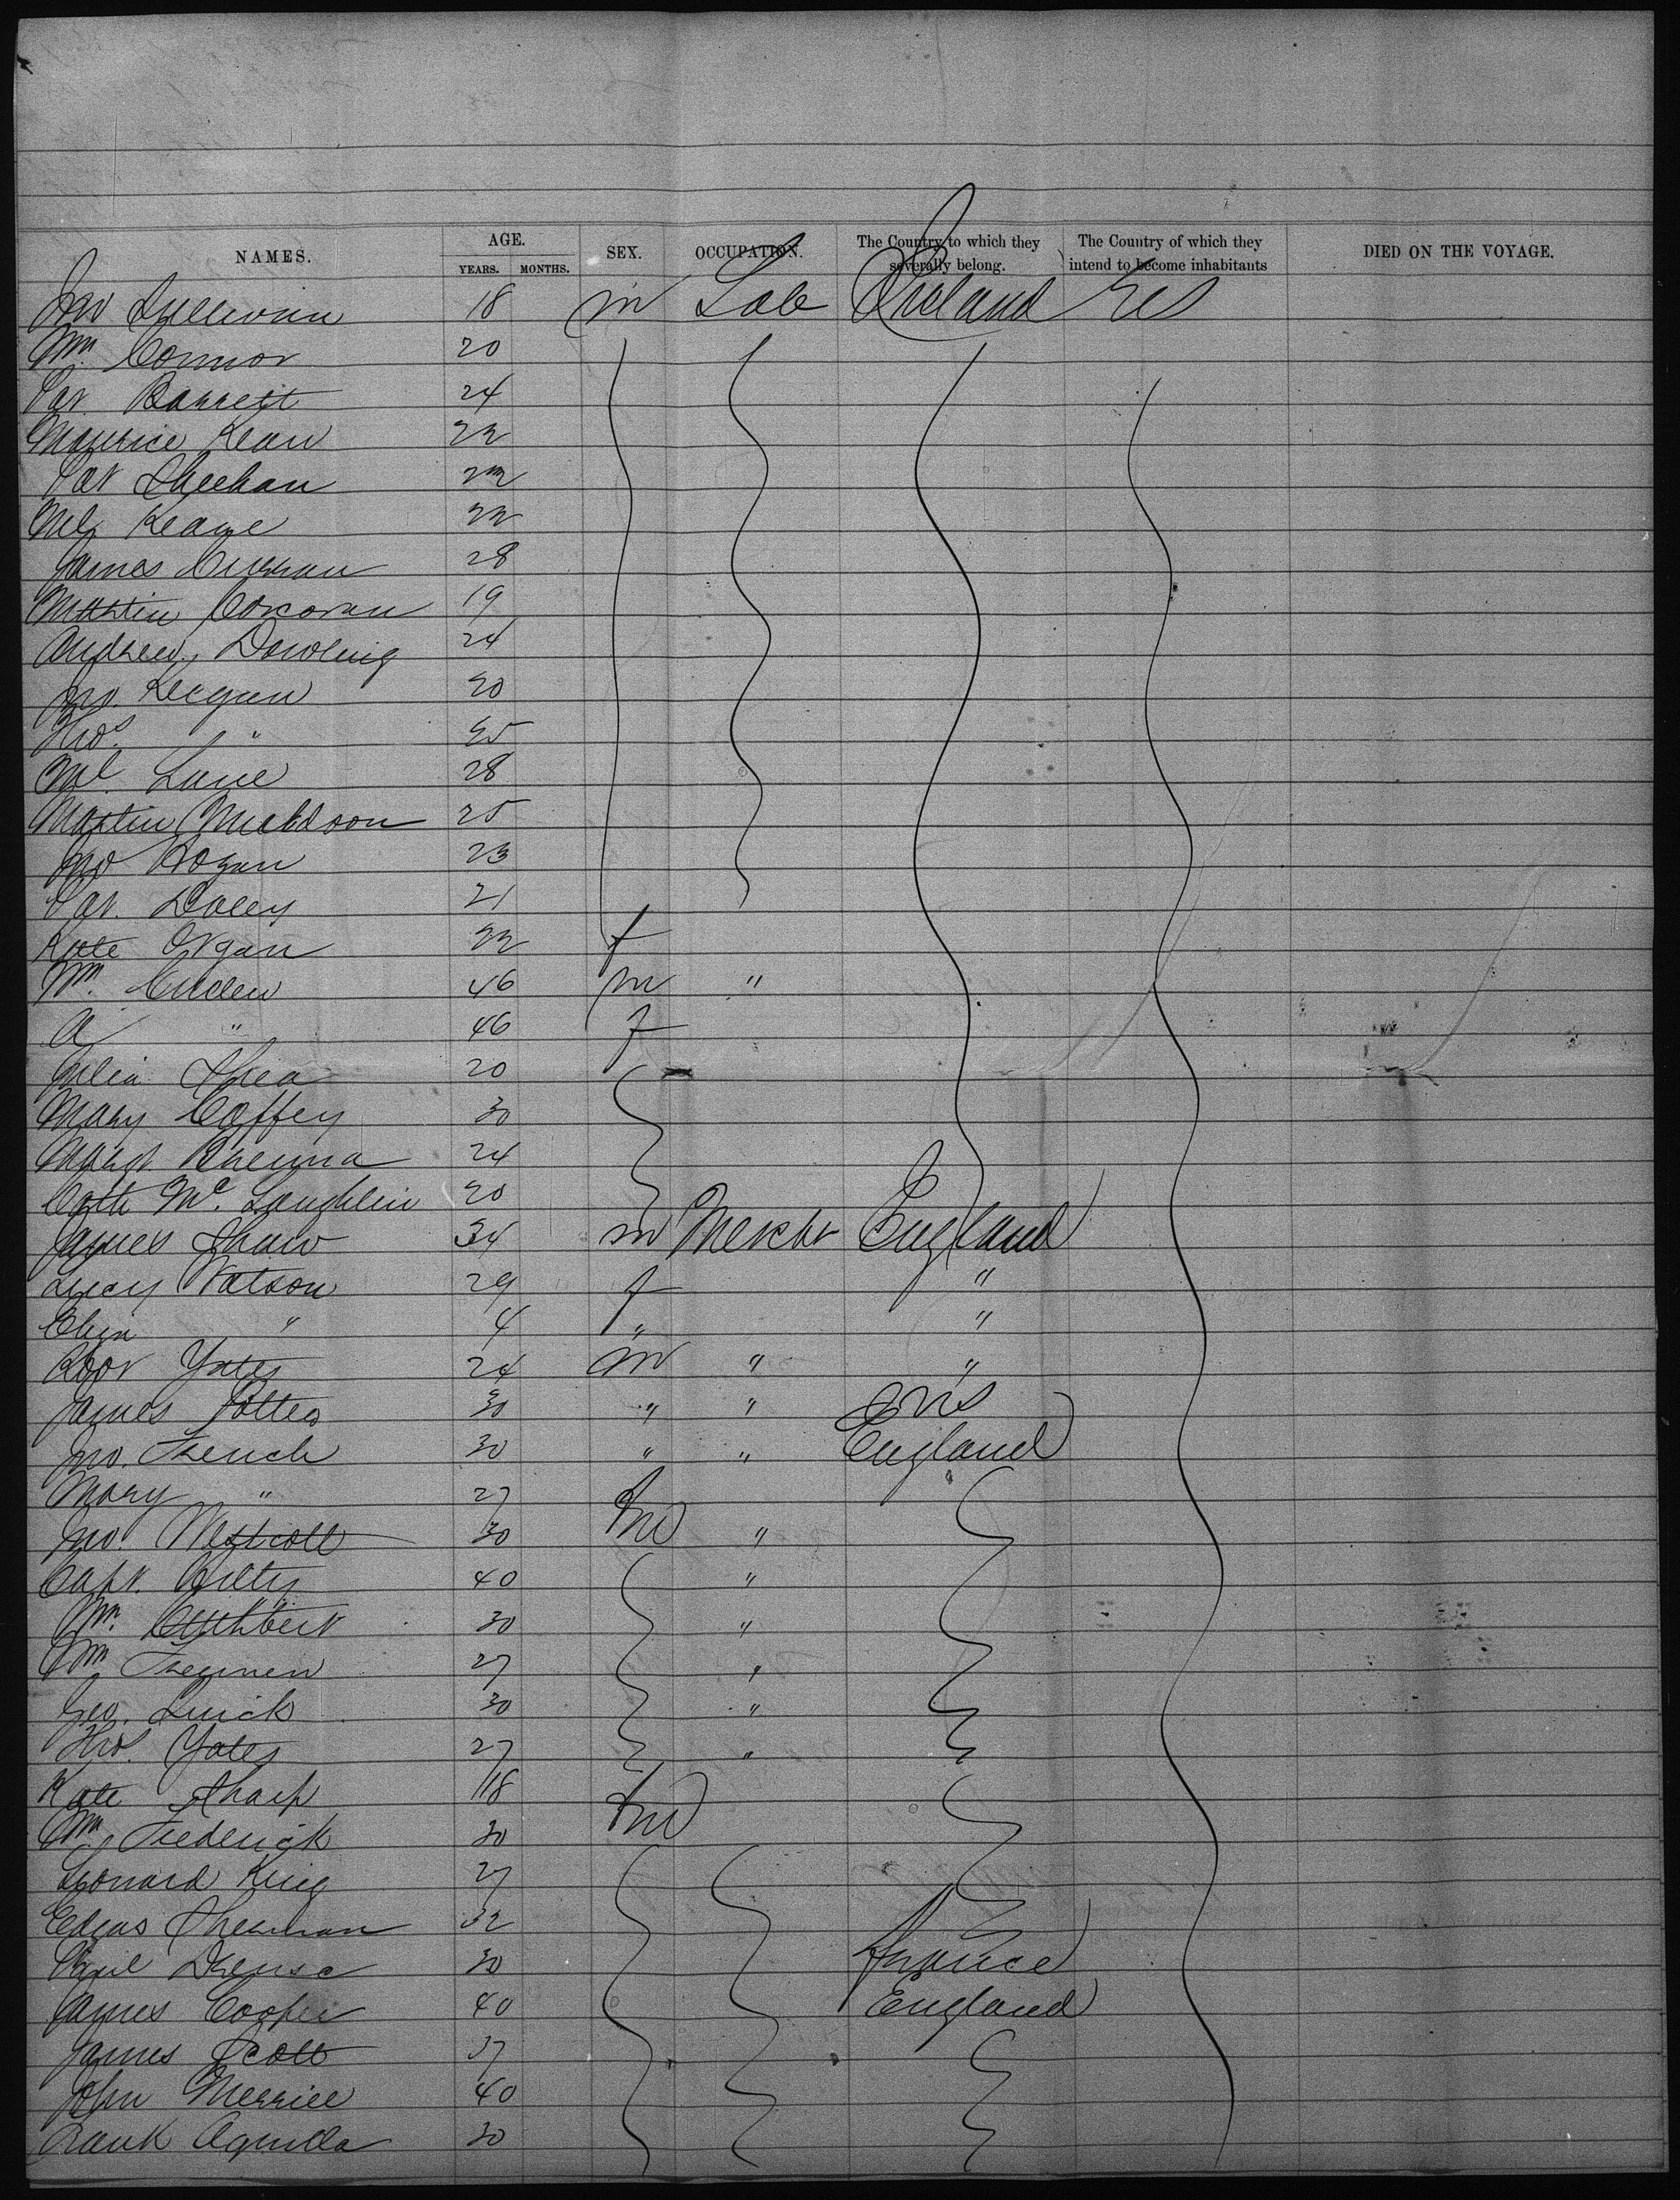 NAMES. AGE. SEX. OCCUPATION. The Country to which they severally belong. The Country of which they intend to become inhabitants DIED ON THE VOYAGE.
YEARS. MONTHS.
Jno Sullivan 18 m Lab Ireland US
Wm Connor 20
Pat Barrett 24
Maurice Kean 22
Pat Sheehan 22
Ml Keane 22
James Curran 28
Martin Corcoran 19
Andrew Dowling 24
Jno. Keegan 20
Thos. " 25
Ml. Lane 28
Martin Muldoon 25
Jno Hogan 23
Pat. Daley 21
Kate Organ 22 f
Wm. Cullen 46 m "
A " 46 f
Julia Shea 20
Mary Coffey 30
Margt 24
Cath Mc. Laughlin 20
James Shaw 34 m Mercht England
Lucy Watson 29 f "
Eliza " 4 " "
Robt Yates 24 m " "
James Potter 30 " " US
Jno. French 30 " " England
Mary " 27 f
Jno. Westcott 30 m "
Capt. 40 "
Wm. Cuthbert 30 "
Wm 27 "
Geo. Quick 30 "
Thos. Yates 27 "
Kate Sharp 18 f
Wm Frederick 30 m
Leonard King 27
Edgar Sherman 32
Paul 30 France
James Cooper 40 England
James Scott 37
John Merrill 40
Frank Aguilla 30